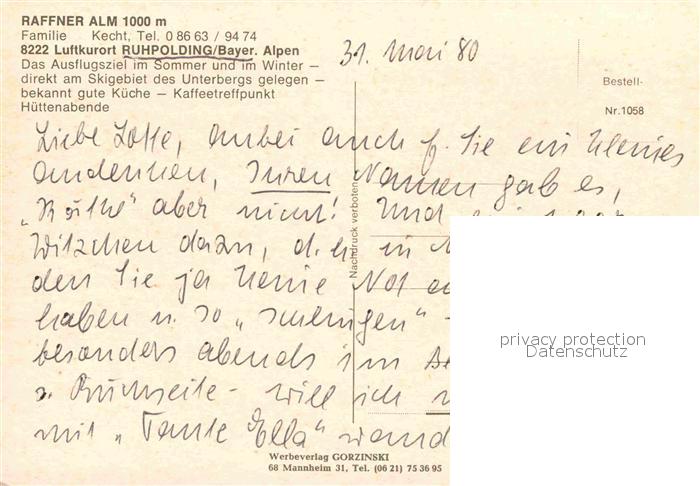 RAFFNER ALM 1000 m
Familie Kecht, Tel. 0 86 63 / 94 74
8222 Luftkurort RUHPOLDING/Bayer. Alpen
Das Ausflugsziel im Sommer und im Winter –
direkt am Skigebiet des Unterbergs gelegen –
bekannt gute Küche – Kaffeetreffpunkt
Hüttenabende
31. Mai 80
Bestell-
Nr. 1058
Liebe Lotte, anbei auch f. Sie ein kleines
Andenken, Ihren Namen gab es,
„Käthe" aber nicht! Und
Witzchen dazu, d. h. in
den Sie ja keine Not
haben u. so „
besonders abends im
s. Rückseite - will ich
mit „Tante Ella"
Nachdruck verboten
privacy protection
Datenschutz
Werbeverlag GORZINSKI
68 Mannheim 31, Tel. (06 21) 75 36 95